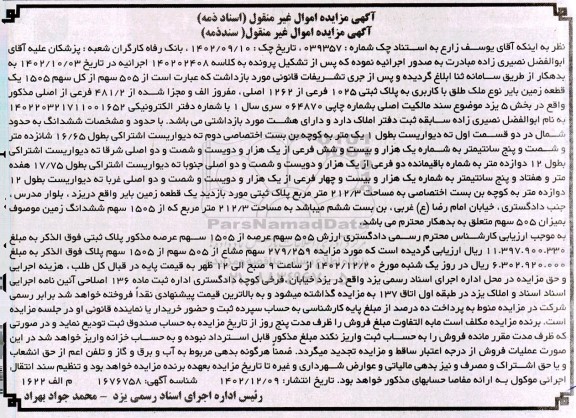 آگهی مزایده اموال غیر منقول (اسناد ذمه)
آگهی مزایده اموال غیر منقول( سندذمه)
نظر به اینکه آقای یوسف زارع به استناد چک شماره : ۰۳۹۳۵۷، تاریخ چک : ۱۴۰۲/۰۹/۱۰ ، بانک رفاه کارگران شعبه : پزشکان علیه آقای
ابوالفضل نصیری زاده مبادرت به صدور اجرائیه نموده که پس از تشکیل پرونده به کلاسه ۱۴۰۲۰۲۴۰۸ اجرائیه در تاریخ ۱۴۰۲/۱۰/۰۳ به
بدهکار از طریق سامانه ثنا ابلاغ گردیده و پس از جری تشریفات قانونی مورد بازداشت که عبارت است از ۵۰۵ سهم از کل سهم ۱۵۰۵ یک
قطعه زمین بایر نوع ملک طلق با کاربری به پلاک ثبتی ۱۰۲۵ فرعی از ۱۲۶۲ اصلی ، مفروز الف و مجزا شده از ۴۸۱/۲ فرعی از اصلی مذکور
واقع در بخش ۵ یزد موضوع سند مالکیت اصلی بشماره چاپی ۰۶۴۸۷۰ سری سال ۱ با شماره دفتر الکترونیکی ۱۴۰۲۲۰۳۲۱۷۱۱۰۰۱۶۵۲
به نام ابوالفضل نصیری زاده سابقه ثبت دفتر املاک دارد و دارای هشت مورد بازداشتی می باشد. با حدود و مشخصات ششدانگ به حدود
شمال در دو قسمت اول ته دیواریست بطول ۱ یک متر به کوچه بن بست اختصاصی دوم ته دیواریست اشتراکی بطول ۱۶/۶۵ شانزده متر
و شصت و پنج سانتیمتر به شماره یک هزار و بیست و شش فرعی از یک هزار و دویست و شصت و دو اصلی شرقا ته دیواریست اشتراکی
بطول ۱۲ دوازده متر به شماره باقیمانده دو فرعی از یک هزار و دویست و شصت و دو اصلی جنوبا ته دیواریست اشتراکی بطول ۱۷/۷۵ هفده
متر و هفتاد و پنج سانتیمتر به شماره یک هزار و بیست و چهار فرعی از یک هزار و دویست و شصت و دو اصلی غربا ته دیواریست بطول ۱۲
دوازده متر به کوچه بن بست اختصاصی به مساحت ۲۱۲/۳ متر مربع پلاک ثبتی مورد بازدید یک قطعه زمین بایر واقع دریزد ، بلوار مدرس ،
جنب دادگستری ، خیابان امام رضا (ع) غربی ، بن بست ششم میباشد به مساحت ۲۱۲/۳ متر مربع که از ۱۵۰۵ سهم ششدانگ زمین موصوف
بمیزان ۵۰۵ سهم متعلق به بدهکار محترم می باشد.
به موجب ارزیابی کارشناس محترم رسمی دادگستری ارزش ۵۰۵ سهم عرصه از ۱۵۰۵ سهم عرصه مذکور پلاک ثبتی فوق الذکر به مبلغ
۱۱.۳۹۷.۹۰۰.۳۳۰ ریال ارزیابی گردیده است که مورد مزایده ۲۷۹/۲۵۹ سهم مشاع از ۵۰۵ سهم از ۱۵۰۵ سهم پلاک فوق الذکر به مبلغ
۶.۳۰۲.۹۲۰.۰۰۰ ریال در روز یک شنبه مورخ ۱۴۰۲/۱۲/۲۰ از ساعت ۹ صبح الی ۱۲ ظهر به قیمت پایه در قبال کل طلب ، هزینه اجرایی
و حق مزایده در محل اداره اجرای اسناد رسمی یزد واقع در یزد خیابان فرخی کوچه دادگستری اداره ثبت ماده ۱۳۶ اصلاحی آئین نامه اجرایی
اسناد اسناد و املاک یزد در طبقه اول اتاق ۱۳۷ به مزایده گذاشته میشود و به بالاترین قیمت پیشنهادی نقداً فروخته خواهد شد برابر رسمی
شرکت در مزایده منوط به پرداخت ده درصد از مبلغ پایه کارشناسی به حساب سپرده ثبت و حضور خریدار یا نماینده قانونی او در جلسه مزایده
است. برنده مزایده مکلف است مابه التفاوت مبلغ فروش را ظرف مدت پنج روز از تاریخ مزایده به حساب صندوق ثبت تودیع نماید و در صورتی
که ظرف مدت مقرر مانده فروش را به حساب ثبت واریز نکند مبلغ مذکور قابل استرداد نبوده و به حساب خزانه واریز خواهد شد در این
صورت عملیات فروش از درجه اعتبار ساقط و مزایده تجدید میگردد. ضمناً هرگونه بدهی مربوط به آب و برق و گاز و تلفن اعم از حق انشعاب
و یا حق اشتراک و مصرف و نیز بدهی مالیاتی و عوارض شهرداری و غیره تا تاریخ مزایده بعهده برنده مزایده خواهد بود و تنظیم سند انتقال
اجرائی موکول به ارائه مفاصا حسابهای مذکور خواهد بود. تاریخ انتشار: ۱۴۰۲/۱۲/۰۹ شناسه آگهی: ۱۶۷۶۷۵۸ م الف ۱۶۲۲
رئیس اداره اجرای اسناد رسمی یزد - محمد جواد بهراد